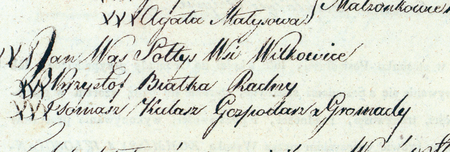 XXX Agata Matysowa } Małżonkowie
XXX Jan Wąs Sołtys Wsi Witkowice
XXX Krzysztof Białka Radny
XXX Tomasz Kulasz Gospodarz z Gromady